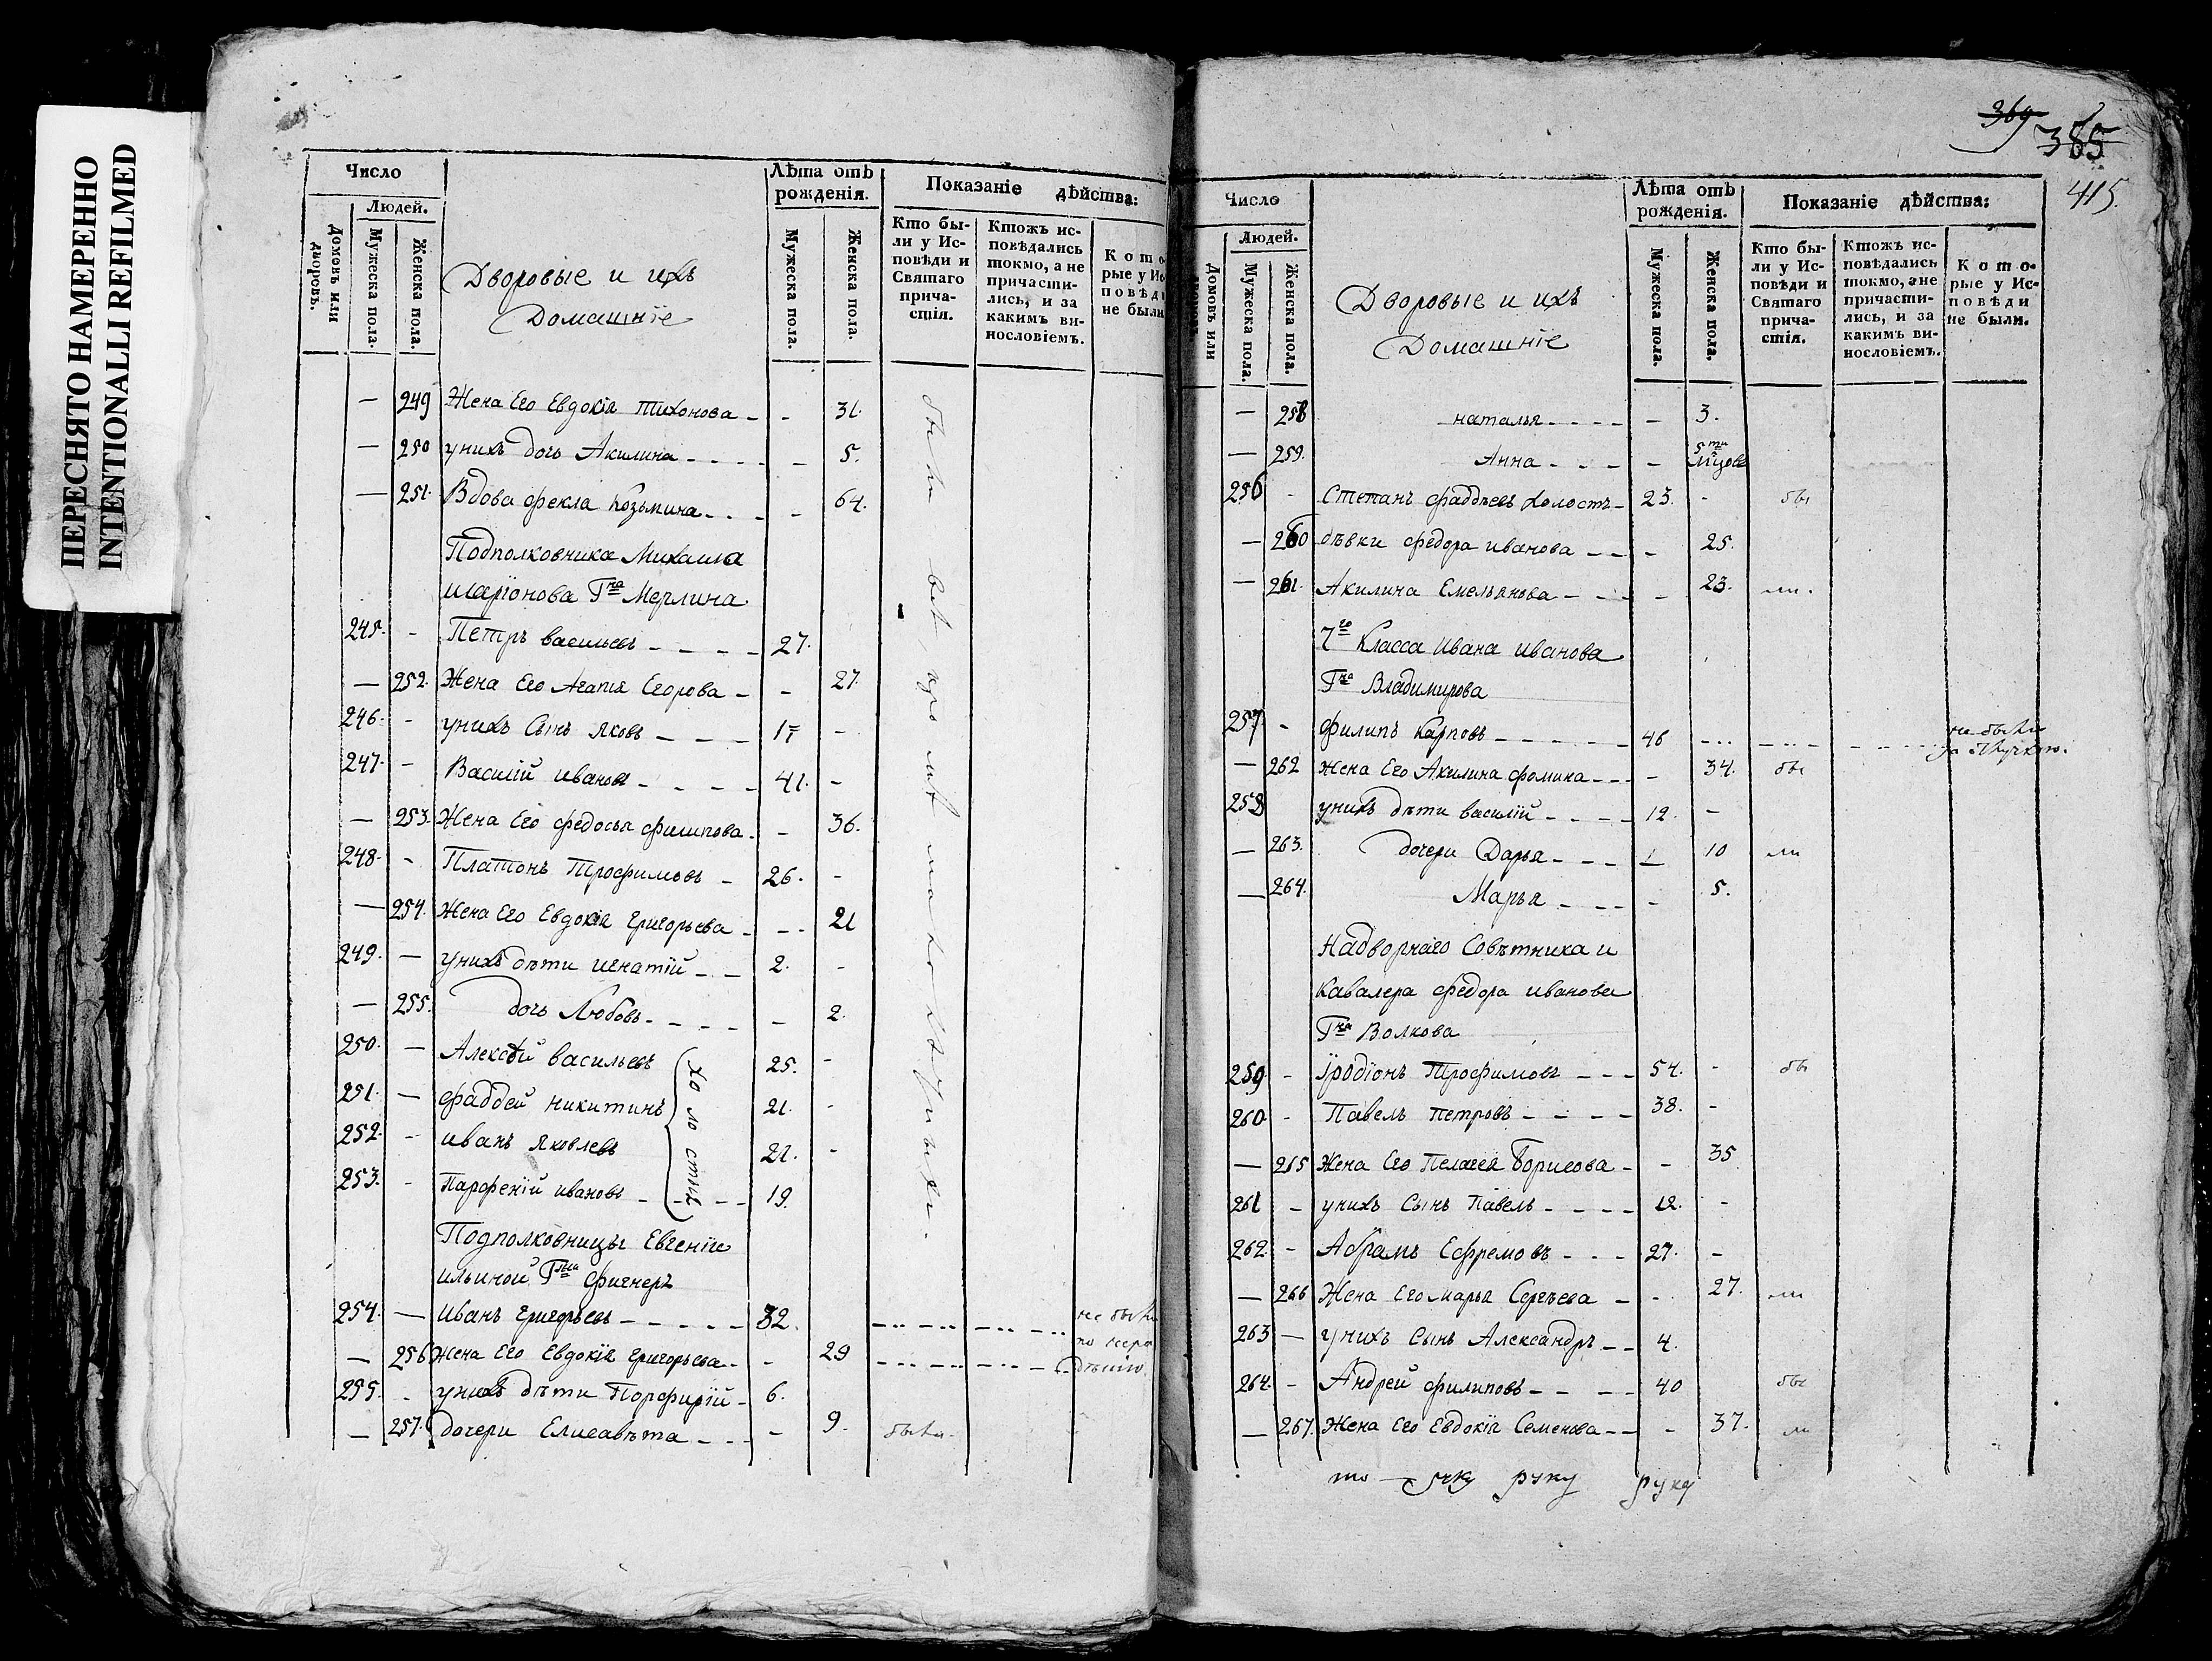 ПЕРЕСНЯТО НАМЕРЕННО
INTENTIONALLI REFILMED
Число
Людей.
Домовъ или дворовъ.
Мужеска пола.
Женска пола.
Дворовые и ихъ
Домашніе
Лѣта отъ
рожденія.
Мужеска пола.
Женска пола.
Показаніе дѣйства:
Кто бы-
ли у Ис-
повѣди и
Святаго
прича-
стія.
Ктожъ ис-
повѣдались
токмо, а не
причасти-
лись, и за
какимъ ви-
нословіемъ.
Кото
рые у Ис
повѣд
не были
— 249 Жена Его Евдокія Тихонова - - 31.
— 250 унихъ дочь Акилина - - - - - 5.
— 251. Вдова Фекла Козьмина - - - - 64.
Подполковника Михаила
иларіонова Гна Мерлина
245. - Петръ васильевъ - - - - 27.
— 252. Жена Его Агапія Егорова - - 27.
246. - унихъ Сынъ Яковъ - - - 1 г -
247. - Василій ивановъ - - - - 41. -
— 253. Жена Его федосья филипова - - 36.
248. - Платонъ Трофимовъ - 26. -
— 254. Жена Его Евдокія григорьева - - - 21
249. — унихъ дѣти игнатій - - 2. -
— 255. дочь Любовь - - - - - 2.
250. — Алексѣй васильевъ 25. -
251. — фаддей никитинъ 21. -
252. - иванъ яковлевъ 21. -
253. - Парфеній ивановъ - - - - 19.
холосты
Подполковницы Евгеніи
ильиной Гжи Фигнеръ
254. — иванъ григорьевъ - - - - - 32. не были
— 256 Жена Его Евдокія григорьева - - 29 по нера
дѣнію
255. - унихъ дѣти Порфирій - 6.
— 257. дочери Елисавѣта - - - - 9. были
369
385
415.
Число
Людей.
Домовъ или
Мужеска пола.
Женска пола.
Дворовые и ихъ
Домашніе
Лѣта отъ
рожденія.
Мужеска пола.
Женска пола.
Показаніе дѣйства:
Кто бы-
ли у Ис-
повѣди и
Святаго
прича-
стія.
Ктожъ ис-
повѣдались
токмо, а не
причасти-
лись, и за
какимъ ви-
нословіемъ.
Кото-
рые у Ис-
повѣди
не были.
— 258 наталья - - - - - 3.
— 259. Анна - - - - 5ти мцовъ
256 - Степанъ фаддѣевъ холостъ - 23. - бы
— 260 дѣвки федора иванова - - - 25.
— 261. Акилина Емельянова - - - - 23. ли.
7го Класса Ивана иванова
Гна Владимирова
257 - филипъ Карповъ - - - - - 46 не были
за отлучкою.
— 262 Жена Его Акилина фомина - - - - 34. бы
258 унихъ дѣти василій - - - - 12. -
— 263. дочери Дарья - - - - 10 ли
— 264. Марья - - - - - 5.
Надворнаго Совѣтника и
Кавалера федора иванова
Гна Волкова
259 - Іродіонъ Трофимовъ - - - 54. - бы
260 - Павелъ петровъ - - - - 38. -
— 265 Жена Его Пелагея Борисова - - 35
261 - унихъ Сынъ Павелъ - - - - 12. -
262 - Абрамъ Ефремовъ - - - 27. -
— 266 Жена Его марья Сергѣева - - 27. ли
263 — унихъ Сынъ Александръ - - 4.
264. - Андрей филиповъ - - - - 40 бы
— 267. Жена Его Евдокія Семенова - - - 37. ли
руку руку